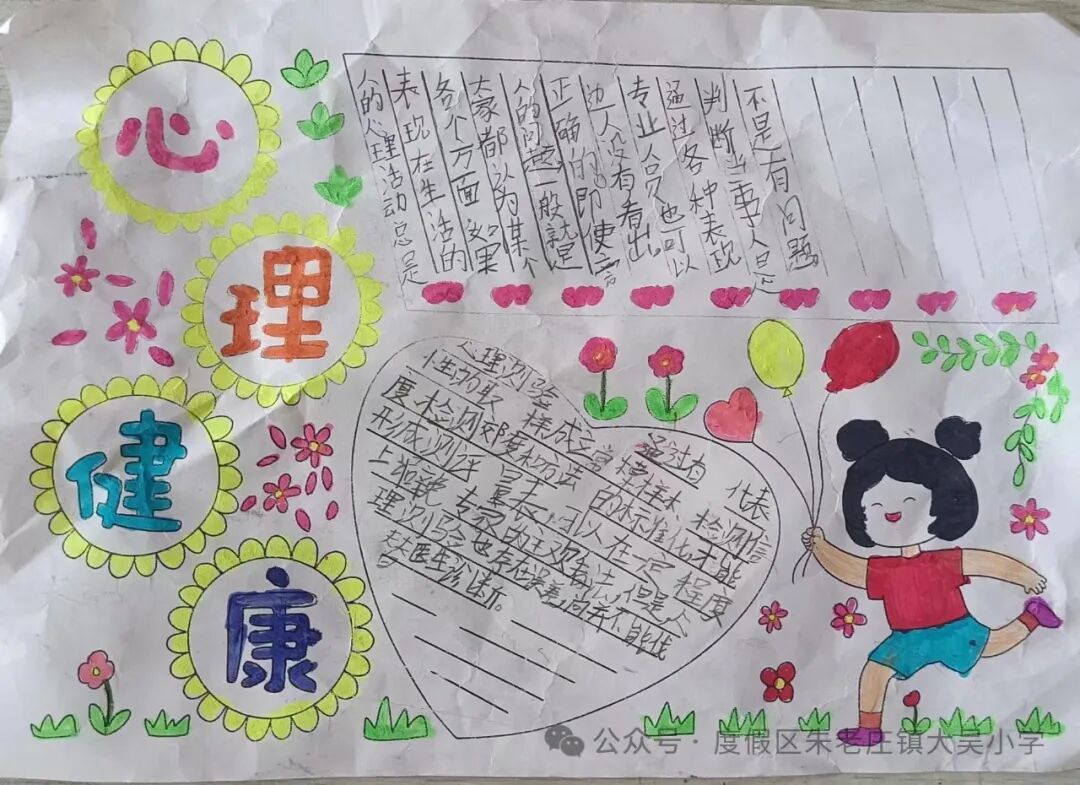 心
理
健
康
人的心理活动总是
表现在生活的
各个方面如果
大家都认为某个
人的问题一般就是
正确的即使
边人没有看出
专业人员也可以
通过各种表现
判断当事人是
不是有问题。
心理测验 通过 代表
取样成立常模样本 检测信
度检测 度 法的标准化才能
形成测评量表。可以在一定程度
上 专家的主观看法，但是心
理测验也存在误差 并不能代
医生诊断。
公众号·度假区朱老庄镇大吴小学